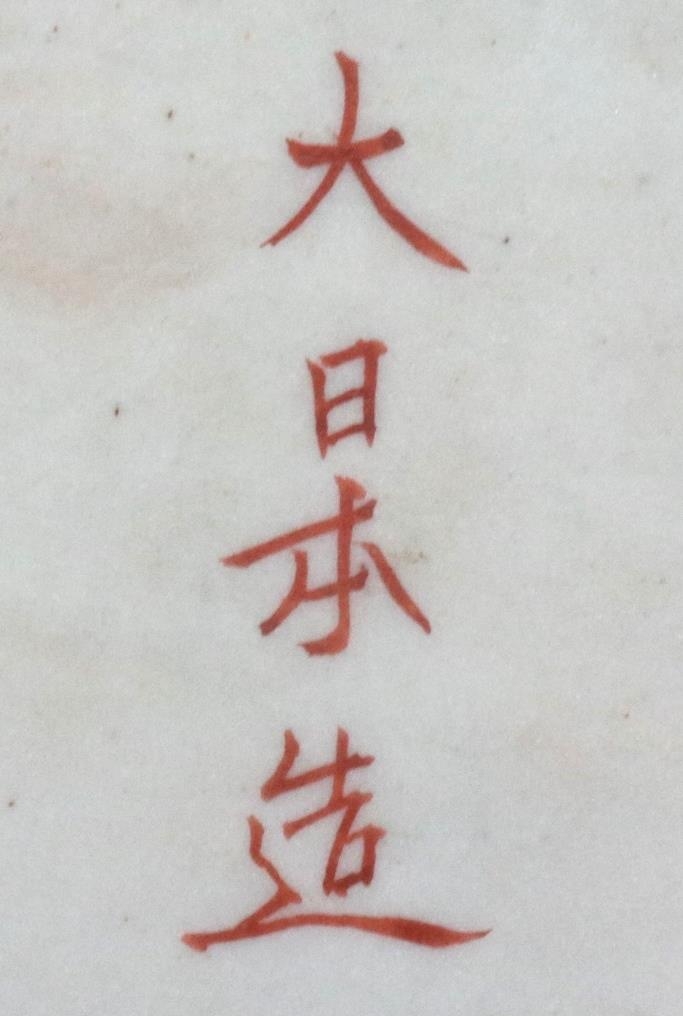 大日本造